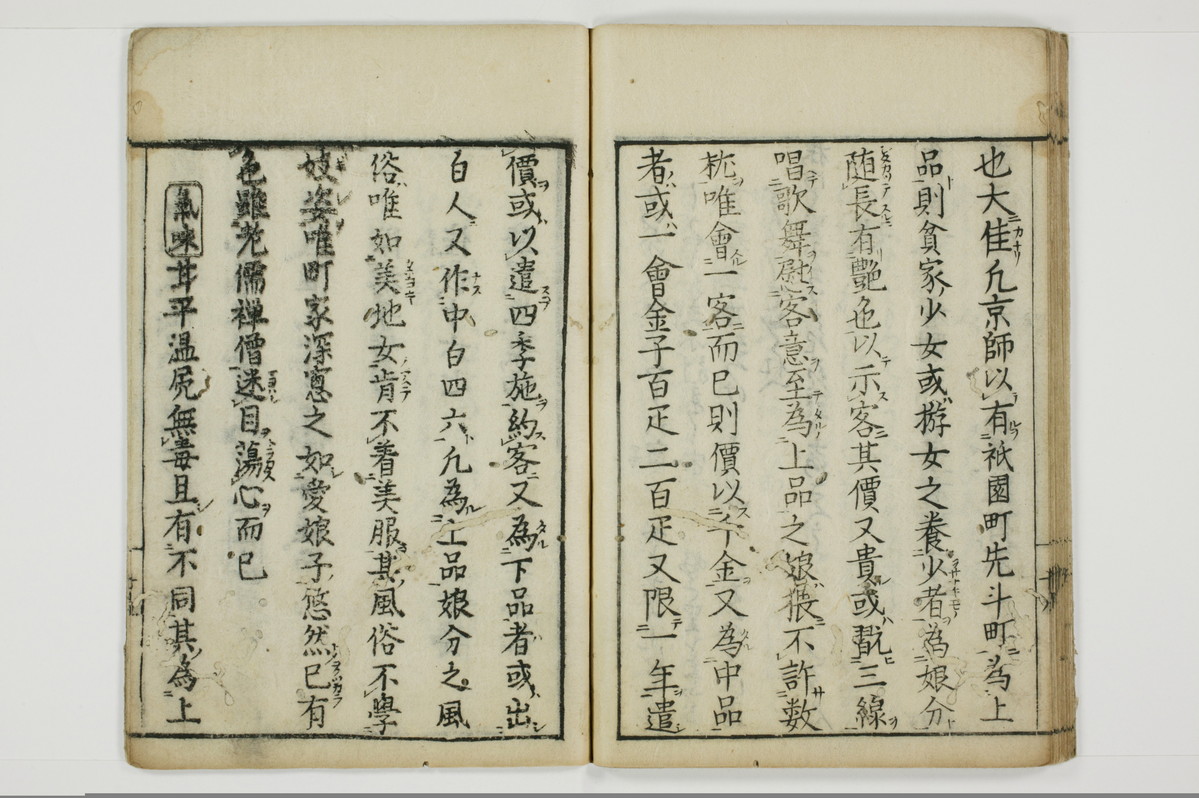 也大佳凢京師以有祇園町先斗町為上
品則貧家少女或遊女之養少者為娘分
随長有艶色以示客其價又貴或翫三線
唱歌舞慰客意至為上品之娘猥不許数
枕唯會一客而已則價以千金又為中品
者或一會金子百疋二百疋又限一年遣
價或以遣四季施約客又為下品者或出
白人又作中白四六凢為上品娘分之風
俗唯如美地女肯不着美服其風俗不學
妓姿唯町家深窻之如愛娘子悠然已有
色雖老儒禅僧迷目蕩心而已
氣味甘平温尻無毒且有不同其為上